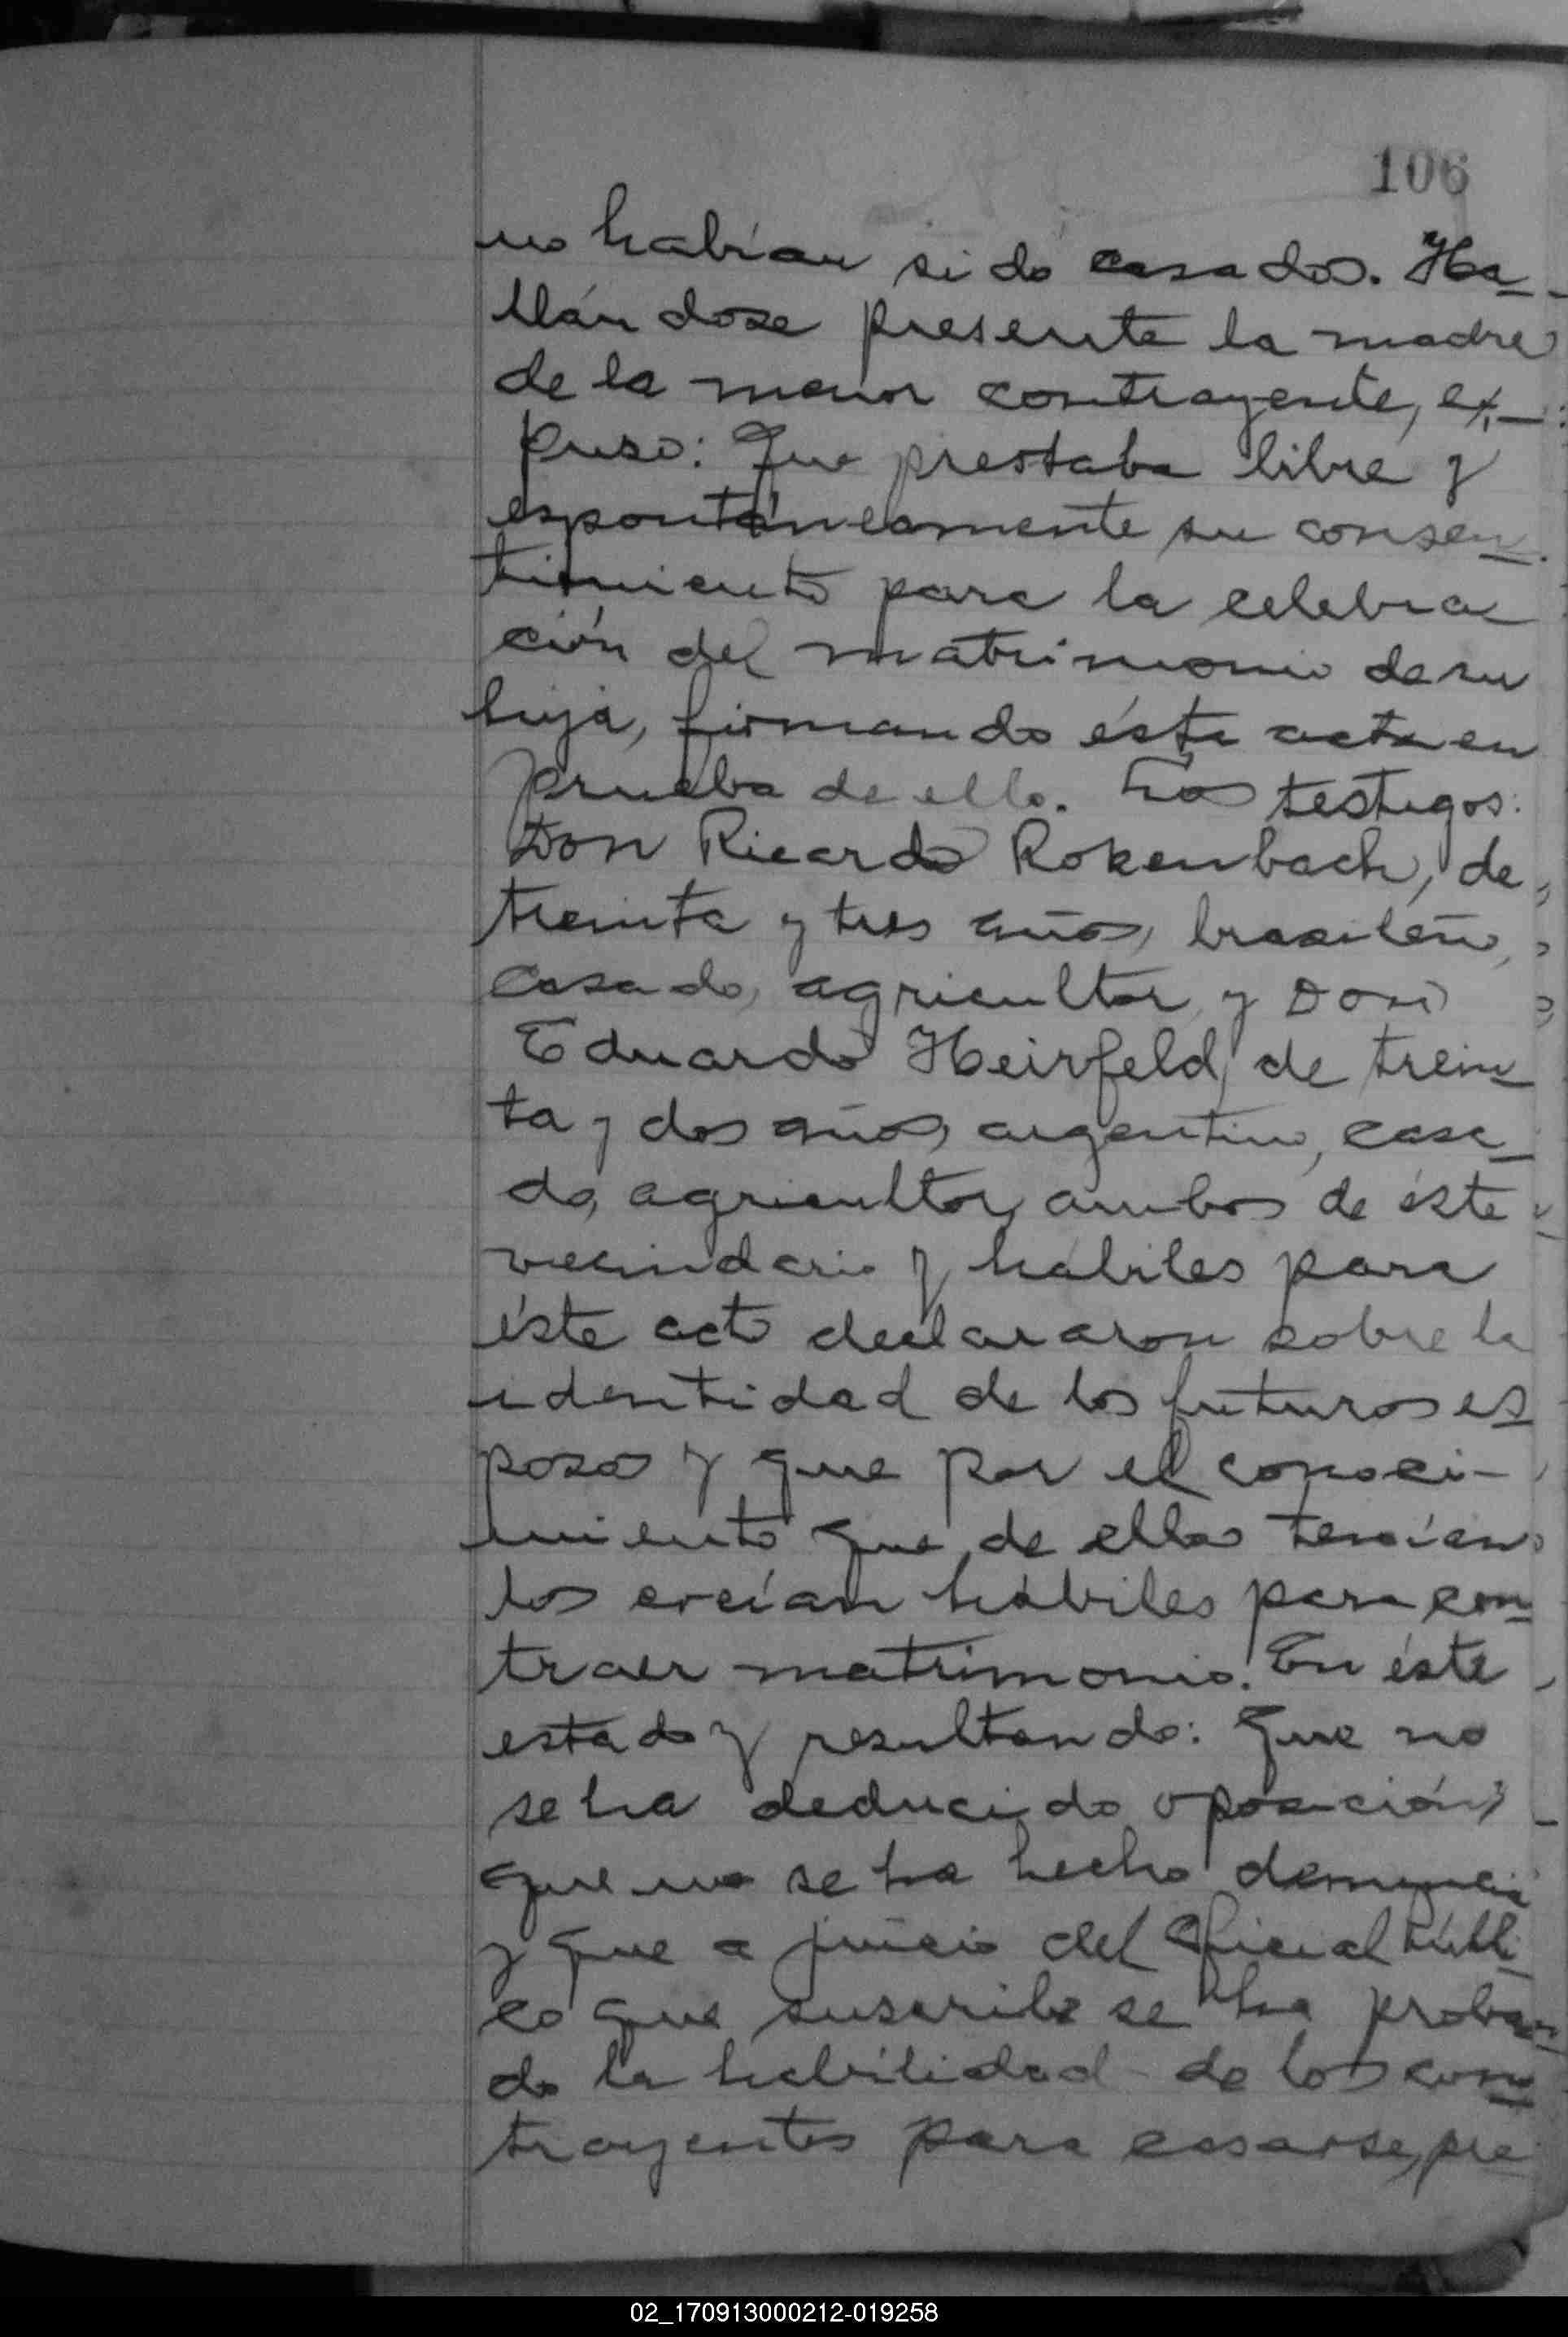 106
no habían sido casados. Ha-
llándose presente la madre
de la menor contrayente, ex-
puso: Que prestaba libre y
espontáneamente su consen-
timiento para la celebra-
ción del matrimonio de su
hija, firmando ésta acta en
prueba de ello. Los testigos:
Don Ricardo Rokenbach, de
treinta y tres años, brasileño,
casado, agricultor, y Don
Eduardo Heirfeld, de trein-
ta y dos años, argentino, casa-
do, agricultor, ambos de éste
vecindario y hábiles para
éste acto declararon sobre la
identidad de los futuros es-
posos y que por el conoci-
miento que de ellos tenían
los creían hábiles para con-
traer matrimonio. En éste
estado y resultando: Que no
se ha deducido oposición;
que no se ha hecho denuncia
y que a juicio del Oficial Públi-
co que suscribe se ha proba-
do la habilidad de los con-
trayentes para casarse, pre
02_170913000212-019258